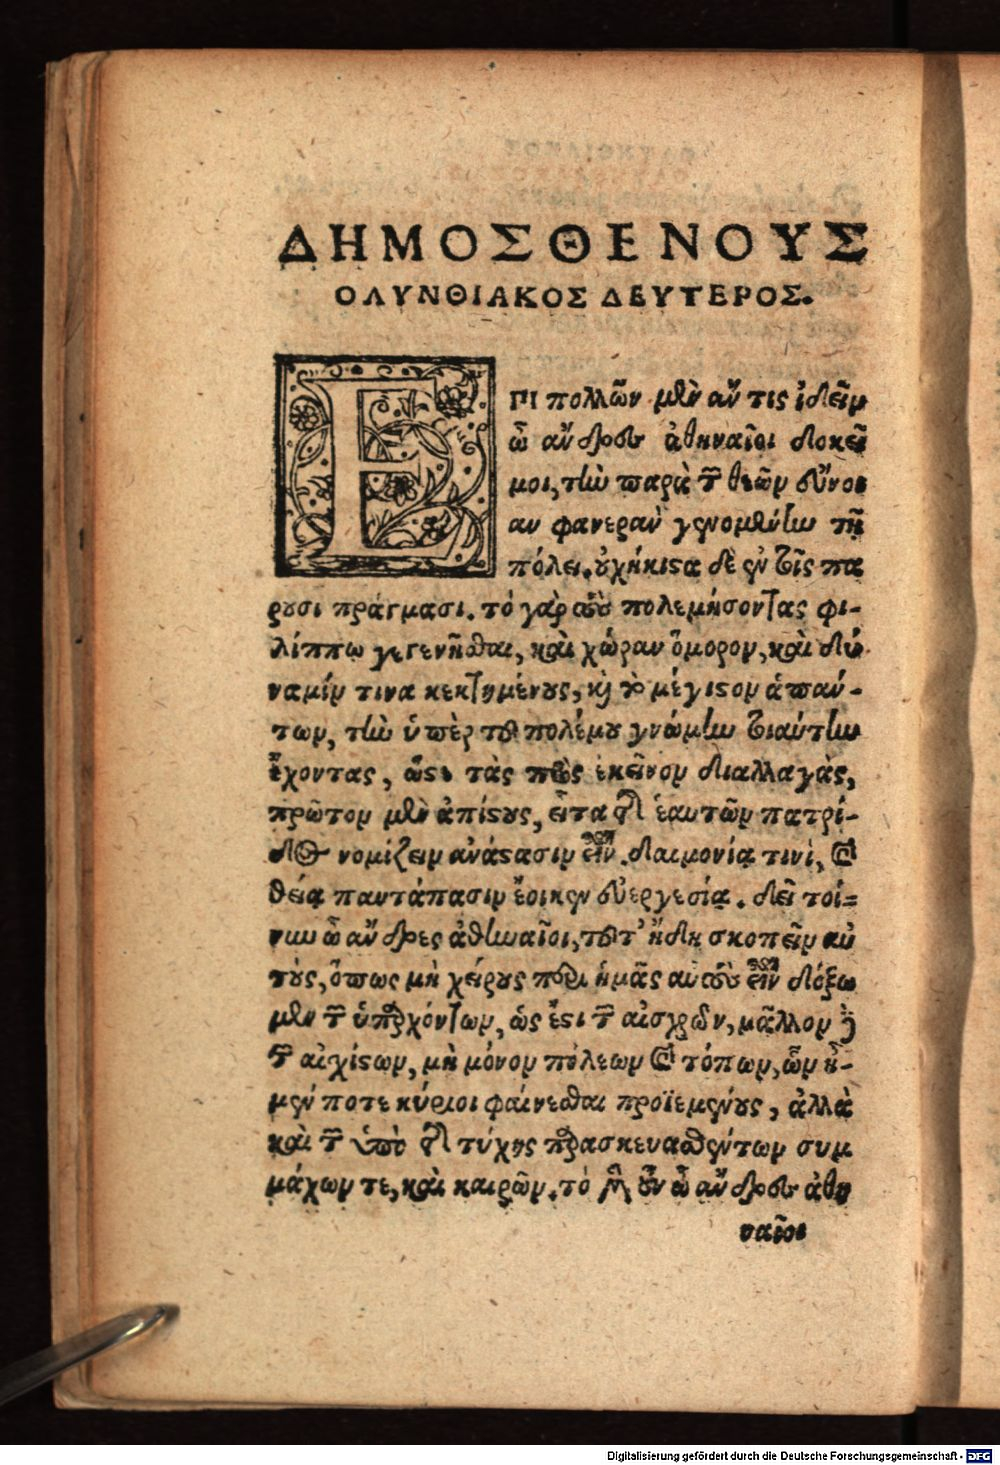 ΔΗΜΟΣΘΕΝΟΥΣ
ΟΛΥΝΘΙΑΚΟΣ ΔΕΥΤΕΡΟΣ.
ΕΠΙ πολλῶν μὲν ἄν τις ἰδεῖν
ὦ ἄνδρες ἀθηναῖοι δοκεῖ
μοι, τὴν παρὰ τῶν θεῶν εὔνοι
αν φανερὰν γενομένην τῇ
πόλει. οὐχήκιστα δὲ ἐν τοῖς πα
ροῦσι πράγμασι. τὸ γὰρ τοὺς πολεμήσοντας φι-
λίππῳ γεγενῆσθαι, καὶ χώραν ὅμορον, καὶ δύ
ναμίν τινα κεκτημένους, καὶ τὸ μέγιστον ἁπάν-
των, τὴν ὑπὲρ τοῦ πολέμου γνώμην τοιαύτην
ἔχοντας, ὥστε τὰς πρὸς ἐκεῖνον διαλλαγὰς,
πρῶτον μὲν ἀπίστους, εἶτα τῆς ἑαυτῶν πατρί-
δος νομίζειν ἀνάστασιν εἶναι. δαιμονίᾳ τινὶ, καὶ
θείᾳ παντάπασιν ἔοικεν εὐεργεσίᾳ. δεῖ τοί=
νυν ὦ ἄνδρες ἀθηναῖοι, τοῦτ' ἤδη σκοπεῖν αὐ
τοὺς, ὅπως μὴ χείρους περὶ ἡμᾶς αὐτοὺς εἶναι δόξω
μεν τῶν ὑπαρχόντων, ὡς ἔστι τῶν αἰσχρῶν, μᾶλλον δὲ
τῶν αἰχίστων, μὴ μόνον πόλεων καὶ τόπων, ὧν ἦ-
μέν ποτε κύριοι φαίνεσθαι προϊεμένους, ἀλλὰ
καὶ τῶν ὑπὸ τῆς τύχης παρασκευασθέντων συμ
μάχων τε, καὶ καιρῶν. τὸ μὲν οὖν ὦ ἄνδρες ἀθη
ναῖοι
Digitalisierung gefördert durch die Deutsche Forschungsgemeinschaft - DFG